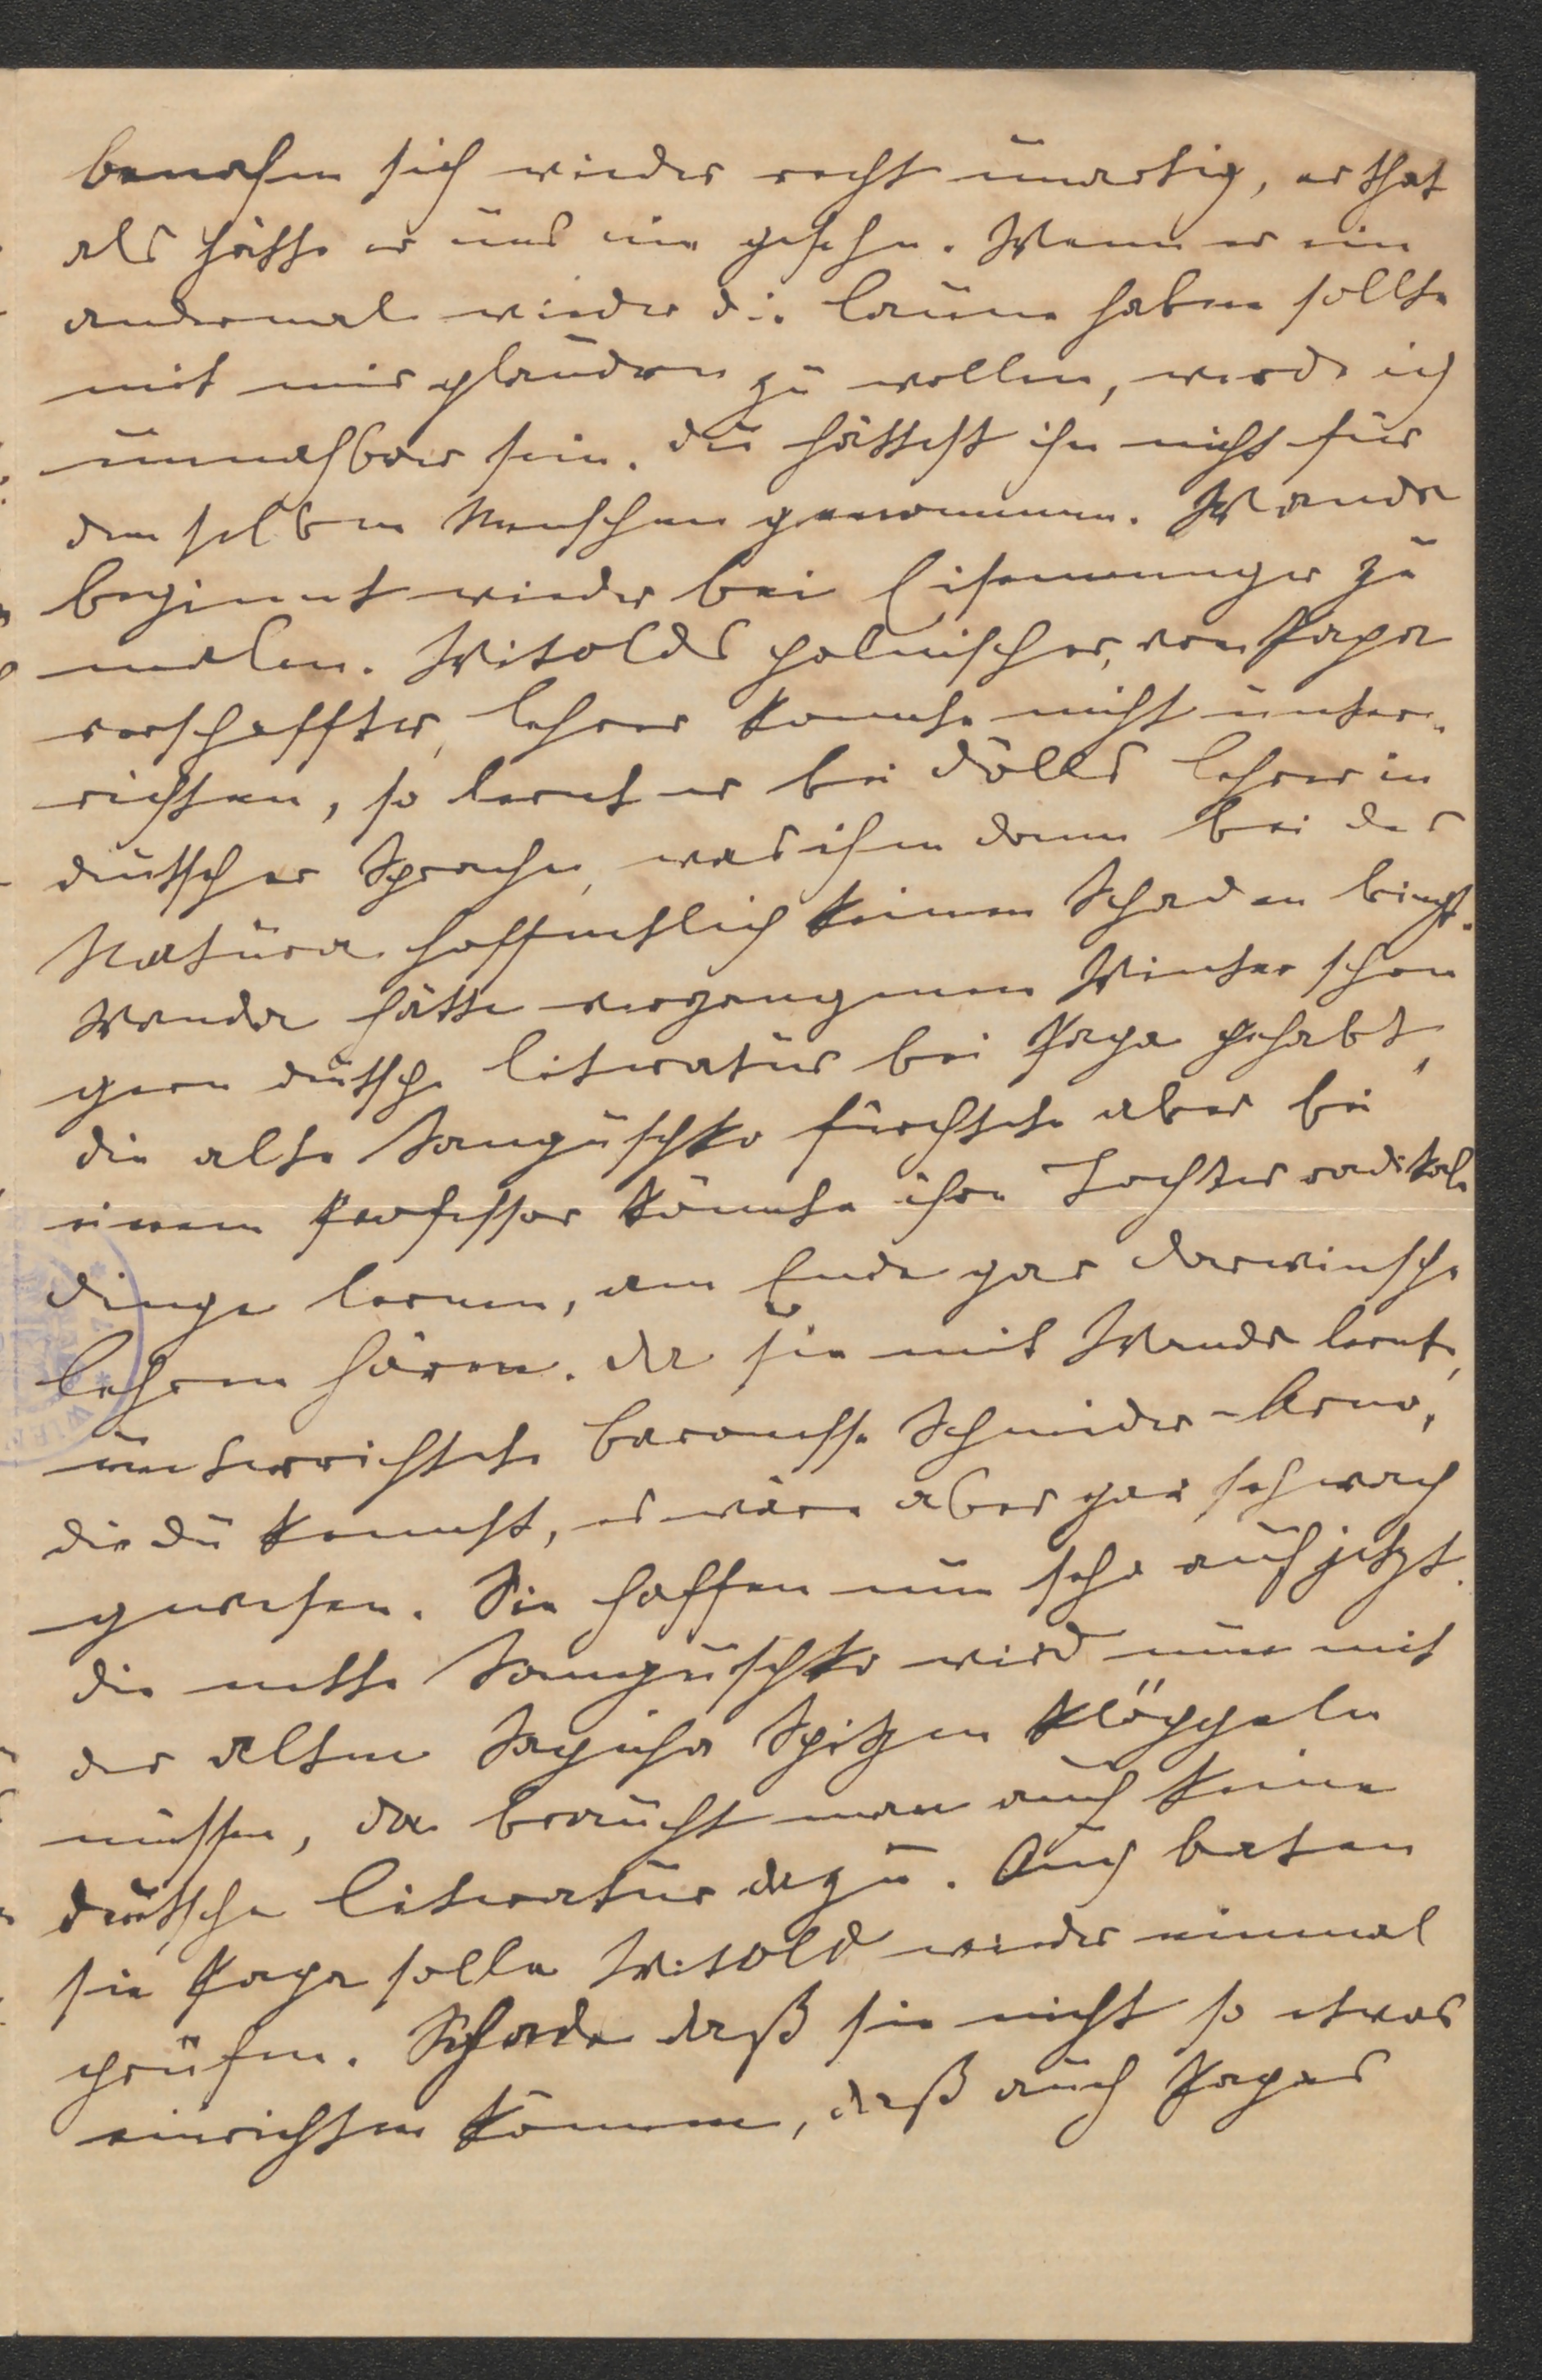 benahm sich wieder recht unartig, er that
als hätte er uns nie gesehn. Wenn er ein
andermal wieder die Laune haben sollte
mit mir plaudern zu wollen, werde ich
unnahbar sein. Du hättest ihn nicht für
denselben Menschen genommen. Wanda
beginnt wieder bei Eisenmenger zu
malen. Witolds polnischer, von Papa
verschaffter, Lehrer konnte nicht unter-
richten, so lernt er bei Dölls Lehrer in
deutscher Sprache, was ihm dann bei der
Matura hoffentlich keinen Schaden bringt.
Wanda hätte vergangenen Winter schon
gern deutsche Literatur bei Papa gehabt,
die alte Sanguschko fürchtete aber bei
einem Professor könnte ihre Tochter radikale
Dinge lernen, am Ende gar Darwinsche
Lehren hören. Da sie mit Wanda lernte,
unterrichtete Baronesse Schneider-Arno,
die Du kennst, es wäre aber gar schwach
gewesen. Sie hoffen nun sehr auf jetzt.
Die nette Sanguschko wird nun mit
der alten Sapieha Spitzen klöppeln
müssen, da braucht man auch keine
deutsche Literatur dazu. Auch baten
sie Papa solle Witold wieder einmal
prüfen. Schade daß sie nicht so etwas
einrichten können, daß auch Papas
WIEN